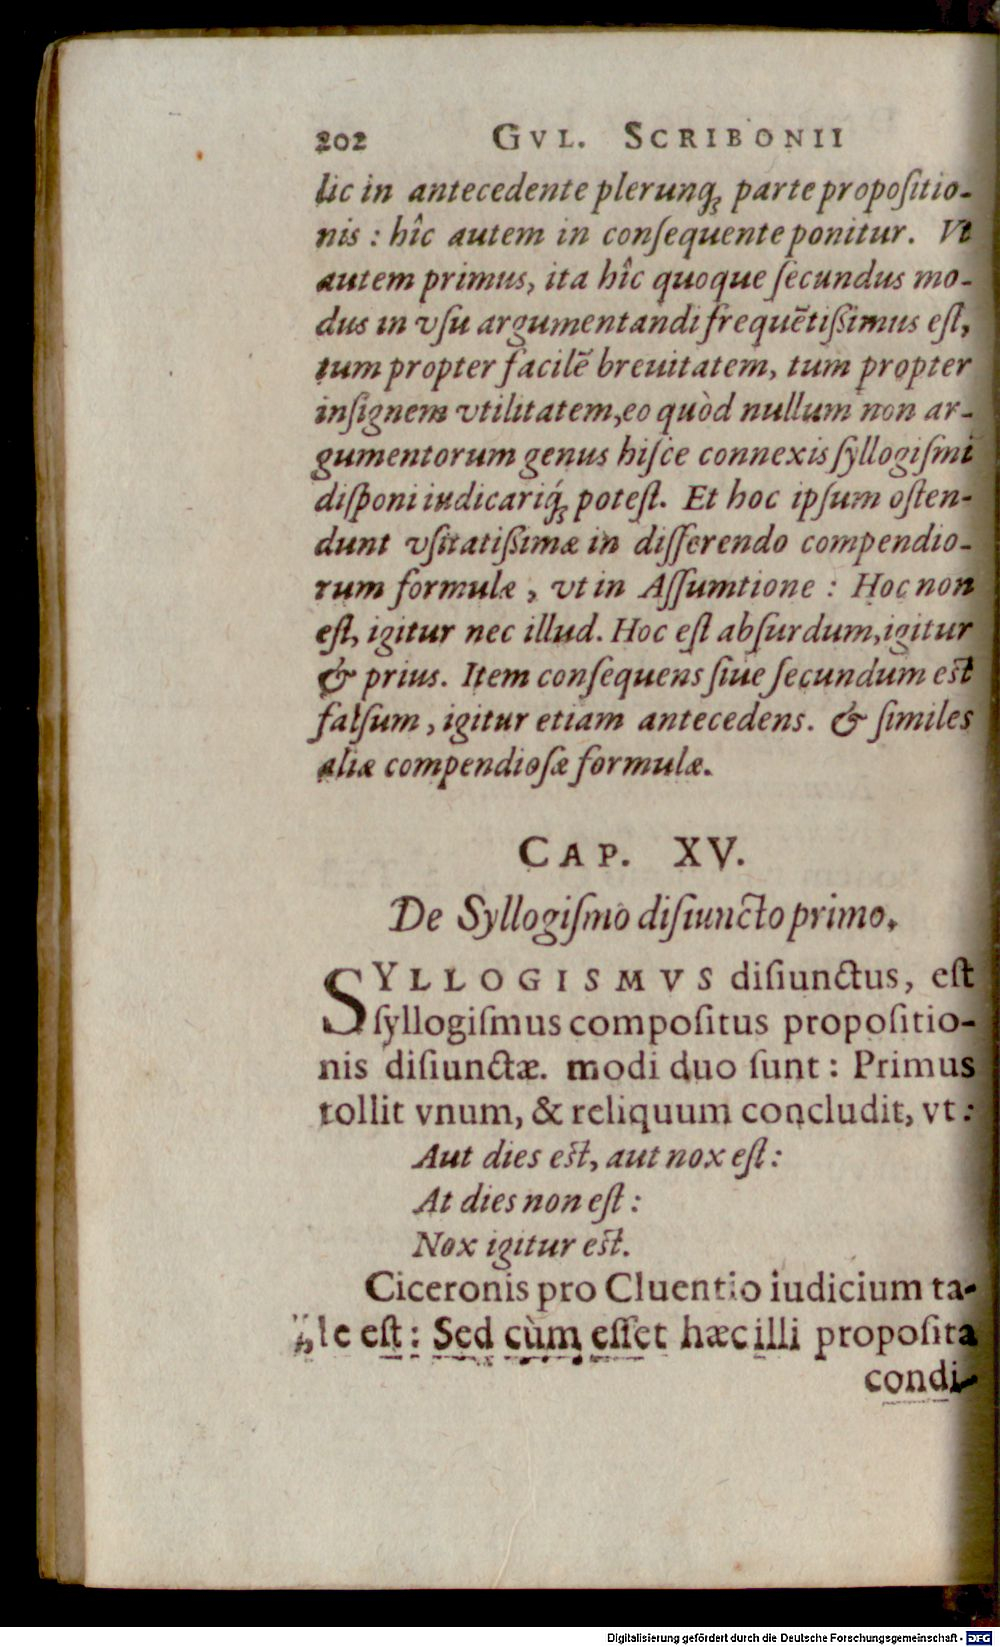 202 GVL. SCRIBONII
lic in antecedente plerunq́ꝫ parte propoſitio-
nis : hîc autem in conſequente ponitur. Vt
autem primus, ita hîc quoque ſecundus mo-
dus in vſu argumentandi frequētißimus eſt,
tum propter facilē breuitatem, tum propter
inſignem vtilitatem, eo quòd nullum non ar-
gumentorum genus hiſce connexis ſyllogiſmi
diſponi iudicariq́ꝫ poteſt. Et hoc ipſum oſten-
dunt vſitatißimæ in diſſerendo compendio-
rum formulæ, vt in Aſſumtione : Hoc non
eſt, igitur nec illud. Hoc eſt abſurdum, igitur
& prius. Item conſequens ſiue ſecundum est
falſum, igitur etiam antecedens. & ſimiles
aliæ compendioſæ formulæ.
CAP. XV.
De Syllogiſmo diſiuncto primo.
SYLLOGISMVS diſiunctus, eſt
ſyllogiſmus compoſitus propoſitio-
nis diſiunctæ. modi duo ſunt : Primus
tollit vnum, & reliquum concludit, vt :
Aut dies est, aut nox eſt :
At dies non eſt :
Nox igitur est.
Ciceronis pro Cluentio iudicium ta-
le eſt : Sed cùm eſſet hæc illi propoſita
condi-
Digitalisierung gefördert durch die Deutsche Forschungsgemeinschaft - DFG